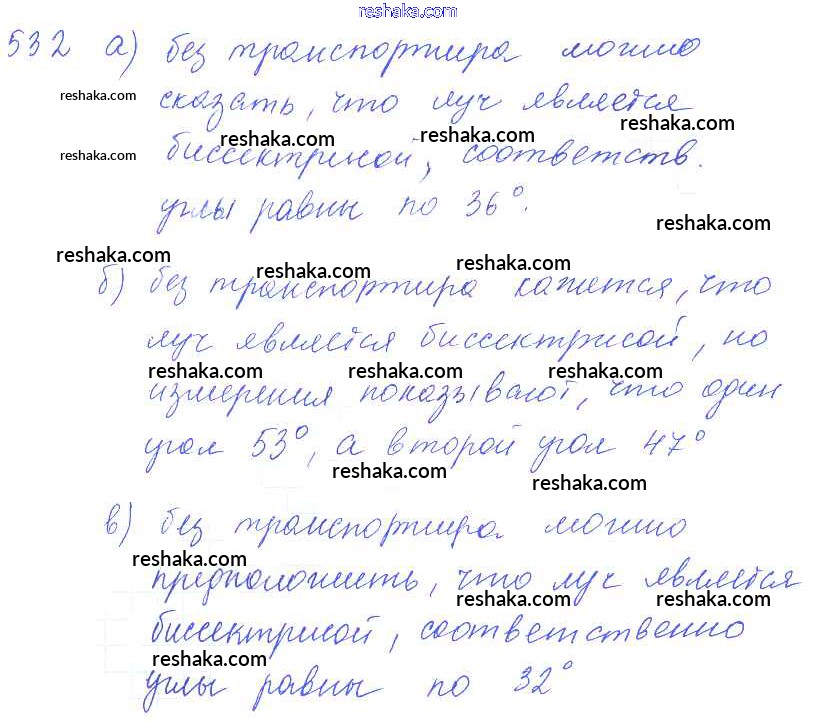 reshaka.com
532 а) без транспортира можно
reshaka.com сказать, что луч является
reshaka.com reshaka.com reshaka.com
reshaka.com биссектрисой, соответств.
углы равны по 36°.
reshaka.com
reshaka.com reshaka.com reshaka.com
б) без транспортира кажется, что
луч является биссектрисой, но
reshaka.com reshaka.com reshaka.com
измерения показывают, что один
угол 53°, а второй угол 47°
reshaka.com reshaka.com
в) без транспортира можно
reshaka.com
предположить, что луч является
reshaka.com reshaka.com
биссектрисой, соответственно
reshaka.com
углы равны по 32°